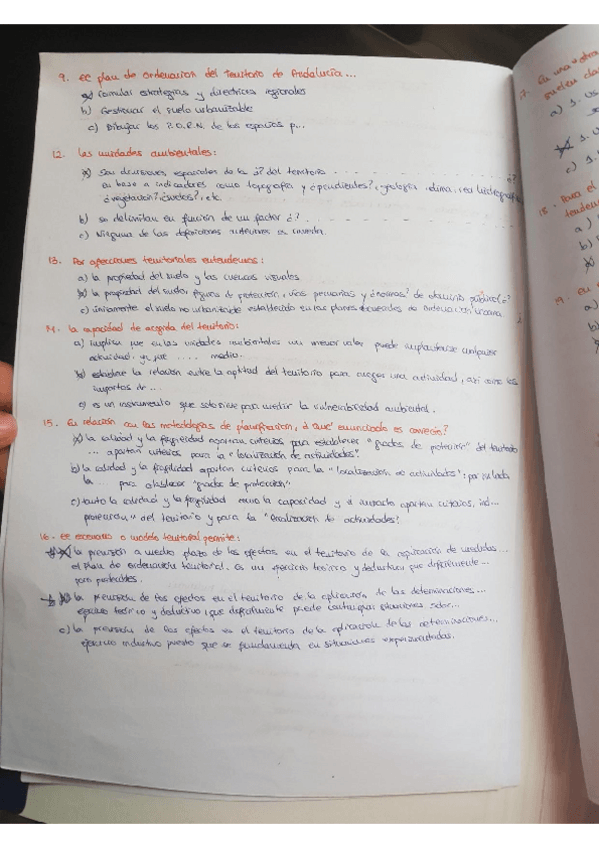 9. El plan de ordenación del Territorio de Andalucía...
a) Formular estrategias y directrices regionales
b) Gestionar el suelo urbanizable
c) Dibujar los P.O.R.N. de los espacios p...
12. Las unidades ambientales:
a) Son divisiones espaciales de la ¿? del territorio
en base a indicadores como topografía y ¿pendientes?, geología, clima, red hidrográfica
¿vegetación?, ¿suelos?, etc.
b) se delimitan en función de un factor ¿?
c) Ninguna de las definiciones anteriores es correcta.
13. Por afecciones territoriales entendemos:
a) la propiedad del suelo y las cuencas visuales
b) la propiedad del suelo, figuras de protección, vías pecuarias y ¿normas? de dominio público (¿?
c) únicamente el suelo no urbanizable establecido en los planes de ordenación urbana
14. La capacidad de acogida del territorio:
a) implica que en las unidades ambientales un menor valor puede implantarse cualquier
actividad, ya que .... medio.
b) establece la relación entre la aptitud del territorio para acoger una actividad, así como los
impactos de ...
c) es un instrumento que solo sirve para medir la vulnerabilidad ambiental.
15. En relación con las metodologías de planificación, ¿ qué enunciado es correcto?
a) la calidad y la fragilidad aportan criterios para establecer "grados de protección" del territorio
... aportan criterios para la "localización de actividades".
b) la calidad y la fragilidad aportan criterios para la "localización de actividades"; por su lado
la ... para establecer "grados de protección"
c) tanto la calidad y la fragilidad como la capacidad y el impacto aportan criterios, ind...
protección" del territorio y para la "localización de actividades".
16. El escenario o modelo territorial permite:
a) la previsión a medio plazo de los efectos en el territorio de la aplicación de medidas...
el Plan de ordenación territorial. Es un ejercicio teórico y deductivo que difícilmente ...
b) la previsión de los efectos en el territorio de la aplicación de las determinaciones...
ejercicio teórico y deductivo, que difícilmente puede
c) la previsión de los efectos en el territorio de la aplicación de las determinaciones...
ejercicio inductivo puesto que se fundamenta en situaciones experimentadas.
17. En una
suelen
a) S.
c) S.
18. Para el
tenden
a)
b)
c)
19. En
a)
b)
c)